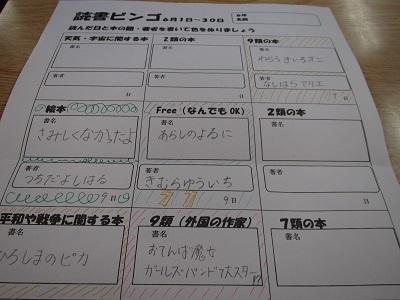 読書ビンゴ 6月1日~30日
年
名前
読んだ日と本の題・著者を書いて色をぬりましょう
天気・宇宙に関する本 2類の本 9類の本
書名 書名 書名
わらうきいろオニ
著者 著者 著者
なしはらアリエ
日 日 7日
絵本 Free(なんでもOK) 2類の本
書名 書名 書名
さみしくなかったよ あらしのよるに
著者 著者 著者
つちだよしはる きむらゆういち
9日 9日 日
平和や戦争に関する本 9類(外国の作家) 7類の本
書名 書名 書名
ひろしまのピカ おてんば魔女
ガールズ・バンドで大スター